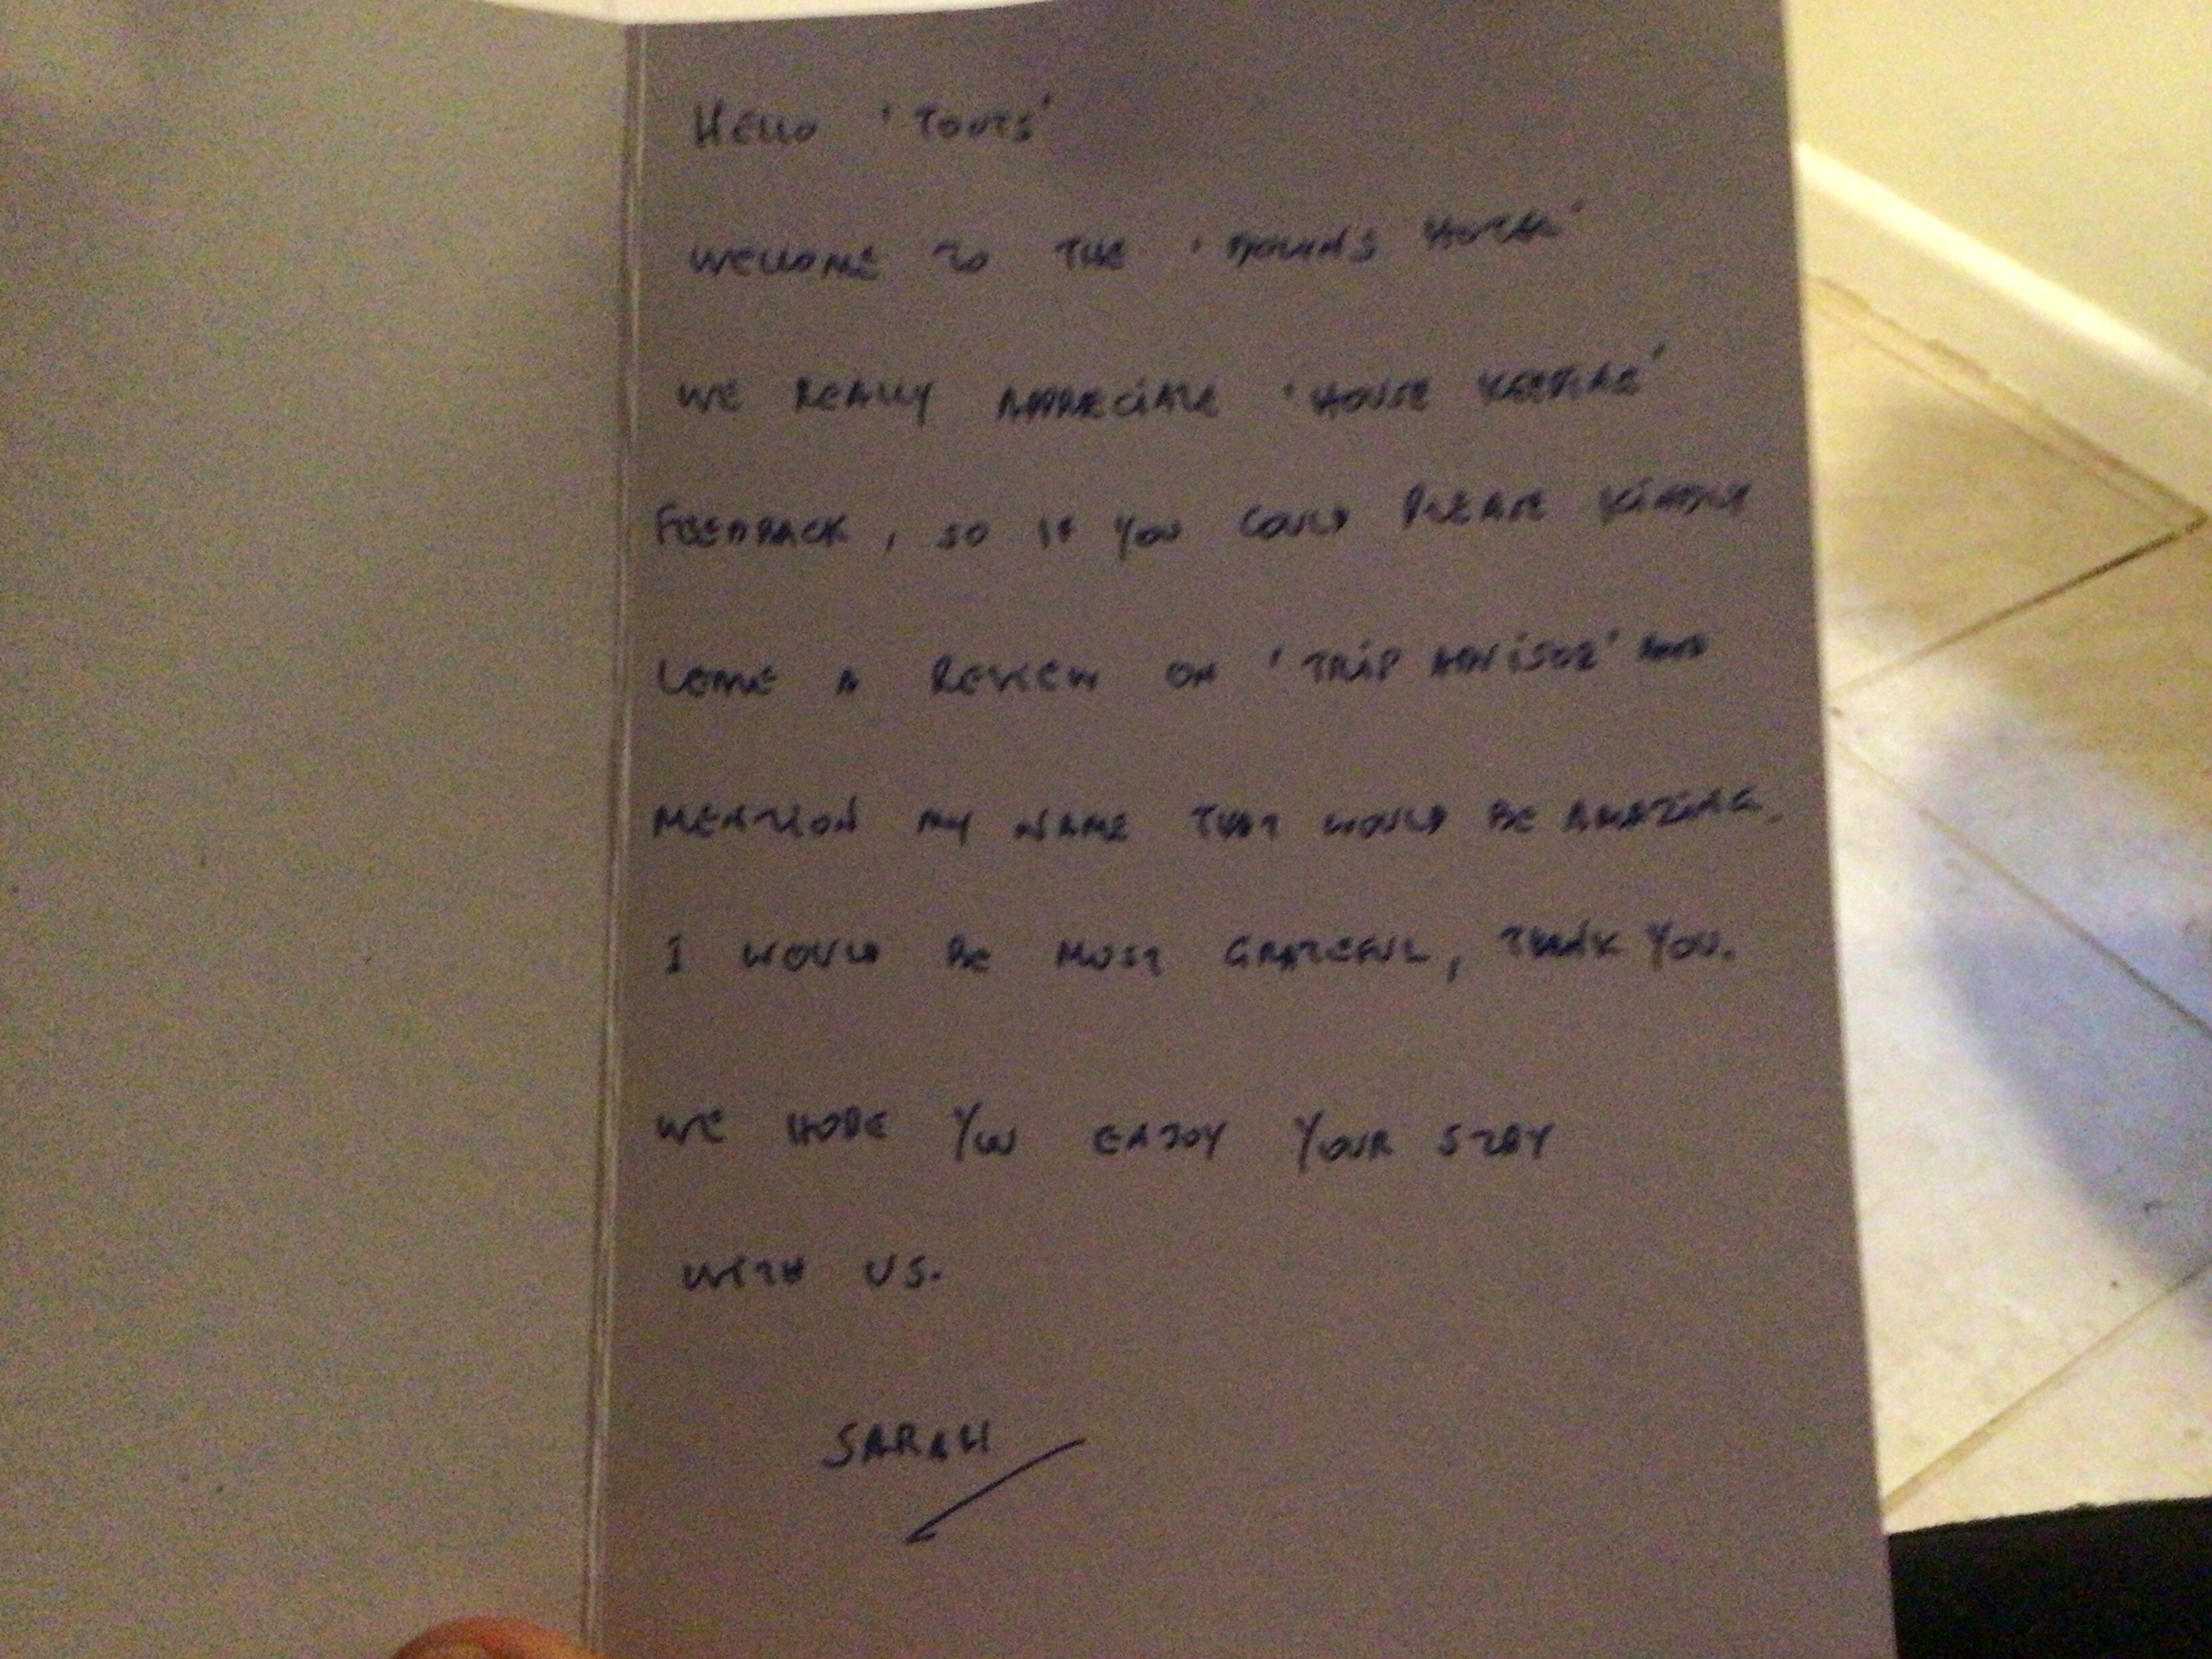 HELLO 'TOOTS'
WELCOME TO THE ' HOTEL'
WE REALLY APPRECIATE 'HOUSE KEEPING'
FEEDBACK, SO IF YOU COULD PLEASE KINDLY
LEAVE A REVIEW ON 'TRIP ADVISOR' AND
MENTION MY NAME THAT WOULD BE AMAZING.
I WOULD BE MOST GRATEFUL, THANK YOU.
WE HOPE YOU ENJOY YOUR STAY
WITH US.
SARAH